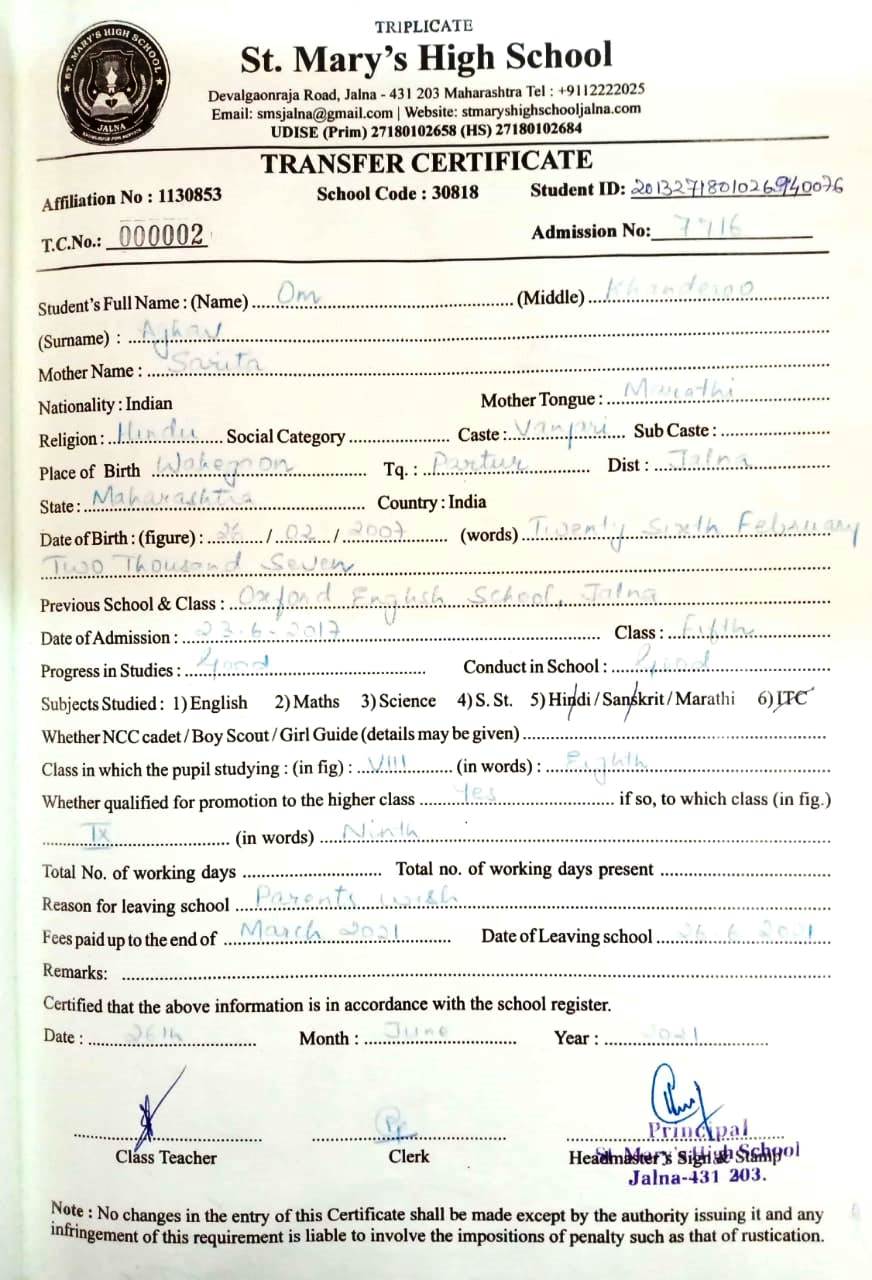 TRIPLICATE
ST. MARY'S HIGH SCHOOL
JALNA
St. Mary's High School
Devalgaonraja Road, Jalna - 431 203 Maharashtra Tel : +9112222025
Email: smsjalna@gmail.com | Website: stmaryshighschooljalna.com
UDISE (Prim) 27180102658 (HS) 27180102684
TRANSFER CERTIFICATE
Affiliation No : 1130853 School Code : 30818 Student ID: 2013271801026940076
T.C.No.: 000002 Admission No: 7716
Student's Full Name : (Name) Om (Middle) Khanderao
(Surname) : Aghav
Mother Name : Sarita
Nationality : Indian Mother Tongue : Marathi
Religion : Hindu Social Category Caste : Vanjari Sub Caste :
Place of Birth Tq. : Partur Dist : Jalna
State : Maharashtra Country : India
Date of Birth : (figure) : 26 / 02 / 2007 (words) Twenty Sixth February
Two Thousand Seven
Previous School & Class : Oxford English School, Jalna
Date of Admission : 23-6-2017 Class : Fifth
Progress in Studies : Good Conduct in School : Good
Subjects Studied : 1) English 2) Maths 3) Science 4) S. St. 5) Hindi / Sanskrit / Marathi 6) ITC
Whether NCC cadet / Boy Scout / Girl Guide (details may be given)
Class in which the pupil studying : (in fig) : VIII (in words) : Eighth
Whether qualified for promotion to the higher class Yes if so, to which class (in fig.)
IX (in words) Ninth
Total No. of working days Total no. of working days present
Reason for leaving school Parents wish
Fees paid up to the end of March 2021 Date of Leaving school 26.6.2021
Remarks:
Certified that the above information is in accordance with the school register.
Date : 26th Month : June Year : 2021
Principal
St. Mary's High School
Jalna-431 203.
Class Teacher Clerk Headmaster's Sign & Stamp
Note : No changes in the entry of this Certificate shall be made except by the authority issuing it and any
infringement of this requirement is liable to involve the impositions of penalty such as that of rustication.